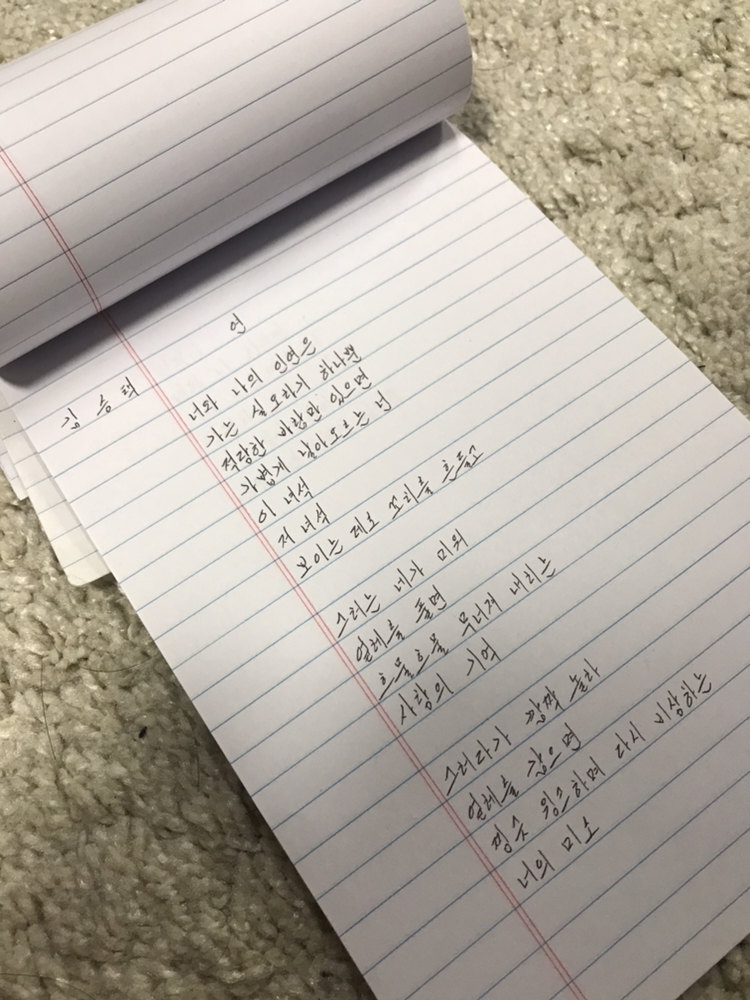 연
김승혁
너와 나의 인연은
가는 실오라기 하나뿐
적당한 바람만 있으면
가볍게 날아오르는 넌
이 녀석
저 녀석
보이는 데로 꼬리를 흔들고
스치는 네가 미워
얼레를 풀면
흐물흐물 무너져 내리는
사랑의 기억
스러라가 깜짝 놀라
얼레를 감으면
찡긋 윙크하며 다시 비상하는
너의 미소